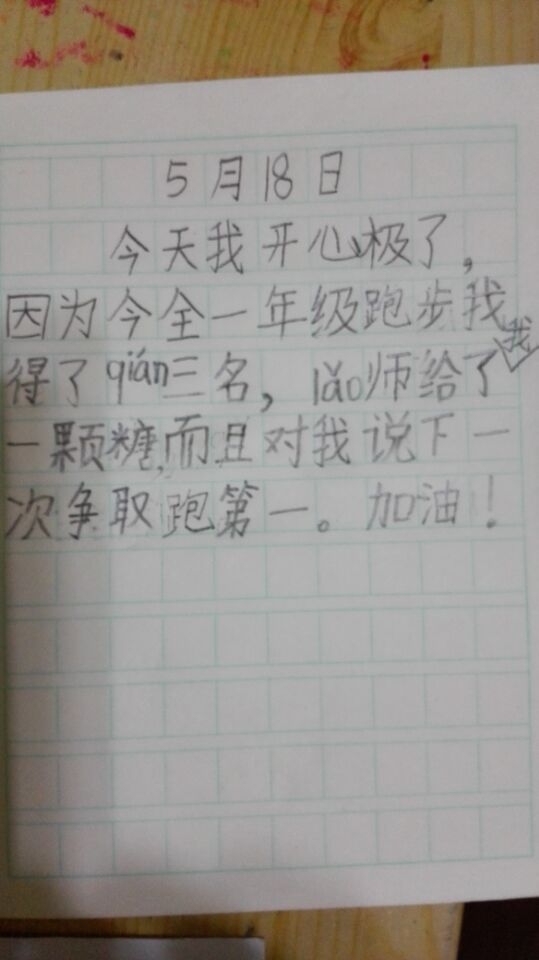 5月18日
今天我开心极了,
因为今全一年级跑步我
得了qián三名,lǎo师给了我
一颗糖,而且对我说下一
次争取跑第一。加油!